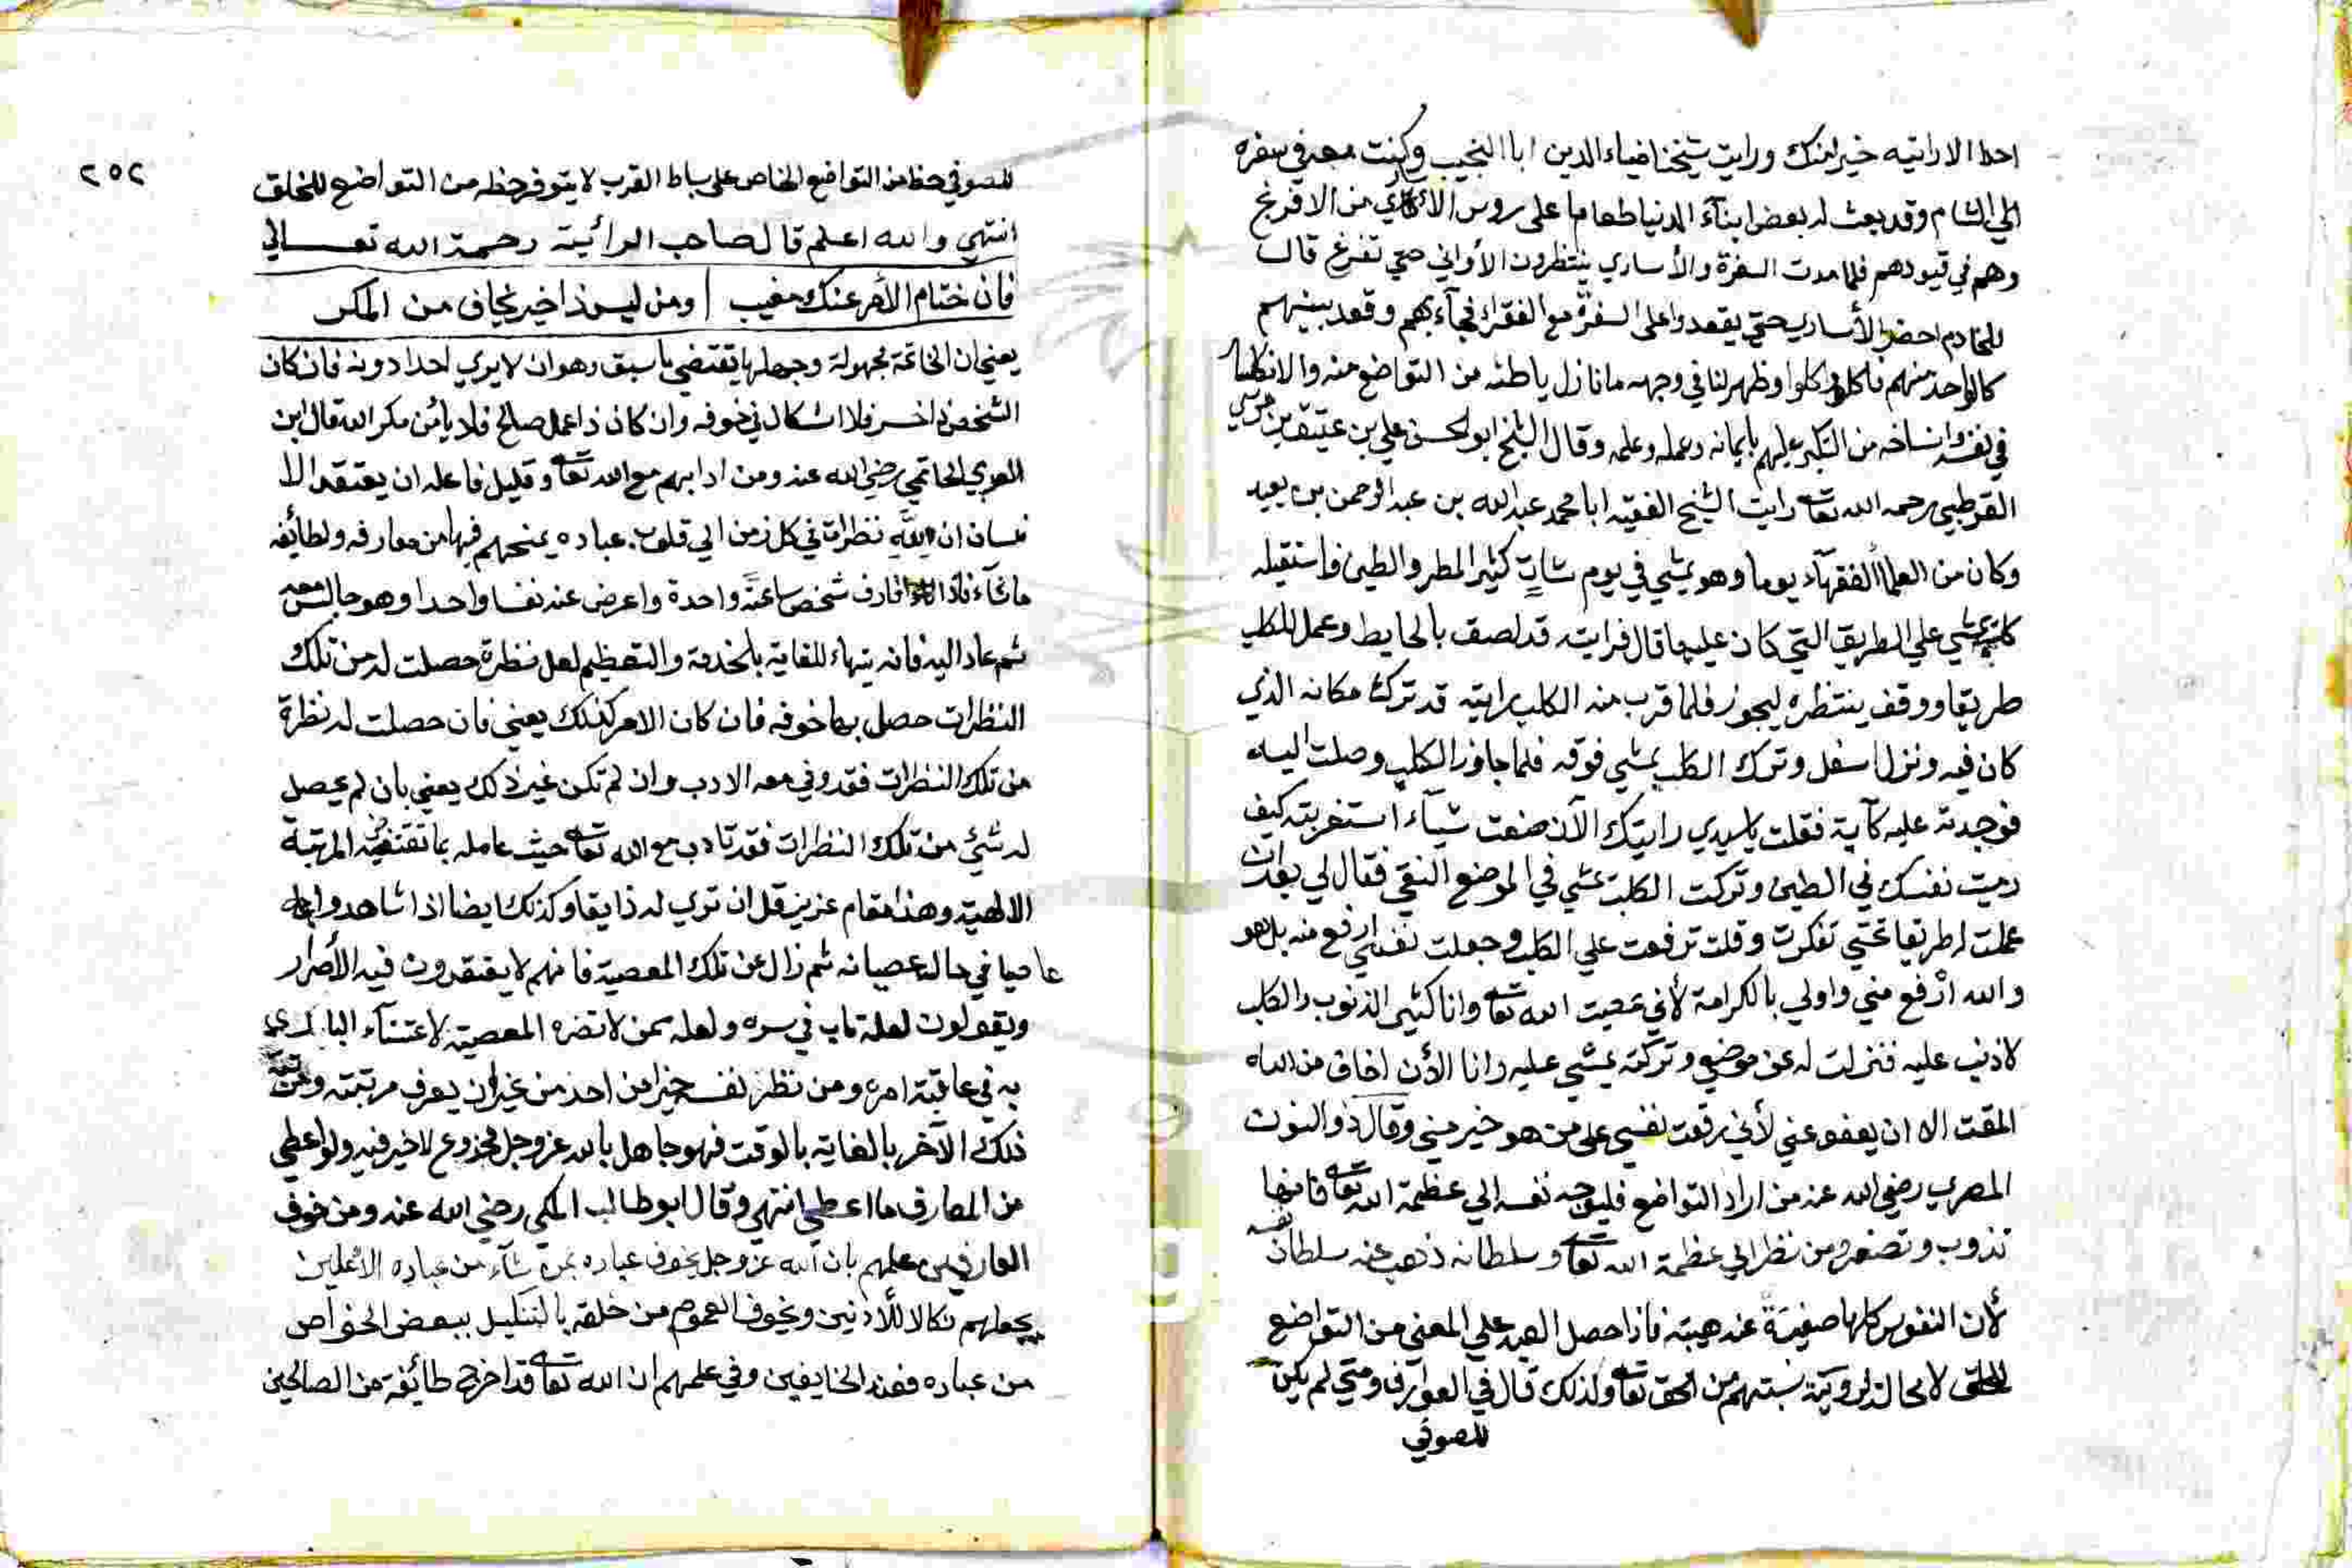 احدا الا رايته خير امنك ورايت شيخنا ضياء الدين ابا النجيب وكنت معه في سفره
الي الشام وقد بعث له بعض ابنآء الدنيا طعاما على روس الأساري من الافرنج
وهم في قيودهم فلما مدت السفرة والأساري ينتظرون الأواني حتي تفرغ قال
للخادم احضر الأساري حتي يقعدوا على السفرة مع الفقرآء فجآء بهم وقعد بينهم
كالواحد منهم فاكل واكلوا وظهر لنا في وجهه ما نازل باطنه من التواضع منه والانكسار
في نفسه وانسلاخه من التكبر عليهم بايمانه وعمله وعلمه وقال الشيخ ابو الحسن علي بن عتيق بن موسي
القرطبي رحمه الله تعا رايت الشيخ الفقيه ابا محمد عبد الله بن عبد الرحمن بن يعيد
وكان من العلمآ الفقهآء يوما وهو يمشي في يوم شاتٍ كثير المطر والطين فاستقبله
كلب يمشي علي الطريق التي كان عليها قال فرايته قد لصق بالحايط وعمل للكلب
طريقا ووقف ينتظره ليجوز فلما قرب منه الكلب رايته قد ترك مكانه الذي
كان فيه ونزل اسفل وترك الكلب يمشي فوقه فلما جاوز الكلب وصلت اليه
فوجدته عليه كآبة فقلت يا سيدي رايتك الآن صنعت شيآء استغربته كيف
رميت نفسك في الطين وتركت الكلب يمشي في الموضع النقي فقال لي بعد ان
عملت له طريقا تحتي تفكرت وقلت ترفعت علي الكلب وجعلت نفسي ارفع منه بل هو
والله ارْفع مني واولي بالكرامة لأني عصيت الله تعا وانا كثير الذنوب والكلب
لا ذنب عليه فنزلت له عن موضعي وتركته يمشي عليه وانا الأن اخاف من الله
المقت الا ان يعفو عني لأني رفعت نفسي على من هو خير مني وقال ذو النون
المصري رضي الله عنه من اراد التواضع فليوجه نفسه الي عظمة الله تعا فانها
تذوب وتصغر ومن نظر الي عظمة الله تعا وسلطانه ذهب عنه سلطان نفسه
لأن النفوس كلها صغيرة عند هيبته فاذا حصل العبد علي المعني من التواضع
للخلق لا محالة لروية نسبتهم من الحق تعا ولذلك قال في العوارف ومتي لم يكن
للصوفي
٢٥٢
للصوفي حظ من التواضع الخاص على بساط القرب لا يتوفر حظه من التواضع للخلق
انتهي والله اعلم قال صاحب الرائية رحمة الله تعــالي
فان ختام الأمر عنك مغيب ومن ليس ذا خسر يخاف من المكر
يعني ان الخاتمة مجهولة وجهلها يقتضي ما سبق وهو ان لا يري احدا دونه فان كان
الشخص ذا خسر فلا اشكال في خوفه وان كان ذا عمل صالح فلا يأمن مكر الله قال ابن
العربي الحاتمي رضي الله عنه ومن ادابهم مع الله تعا وقليل فاعله ان يعتقد الا
نسان ان لله نظرات في كل زمن الي قلوب عباده يمنحهم فيها من معارفه ولطائفه
ما شآء فاذا فارق شخص ساعة واحدة واعرض عنه نفسا واحدا وهو جالس معه
ثم عاد اليه فانه يتهاء للقايه بالخدمة والتعظيم لعل نظرة حصلت له من تلك
النظرات حصل بها خوفه فان كان الامر كذلك يعني فان حصلت له نظرة
من تلك النظرات فقد وفي معه الادب وان لم تكن غير ذلك يعني بان لم يحصل
له شيٌ من تلك النظرات فقد تادب مع الله تعا حيث عامله بما تقتضيه المرتبة
الالهية وهذا مقام عزيز قل ان تري له ذايقا وكذلك ايضا اذا شاهدوا
عاصيا في حال عصيانه ثم زال عن تلك المعصية فانهم لا يعتقدون فيه الأصرار
ويقولون لعله تاب في سره ولعله ممن لا تضره المعصية لاعتنآء الباري
به في عاقبة امره ومن نظر نفسه خيرا من احد من غير ان يعرف مرتبته ومرتبة
ذلك الآخر بالغاية بالوقت فهو جاهل بالله عز وجل مخدوع لا خير فيه ولو اعطي
من المعارف ما اعطي انتهي وقال ابو طالب المكي رضي الله عنه ومن خوف
العارفين علمهم بان الله عز وجل يخوف عباده بمن شآء من عباده الأعلين
يجعلهم نكالا للأدنين ويخوف العموم من خلقه بالتنكيل ببعض الخواص
من عباده فعند الخايفين وفي علمهم ان الله تعا قد اخرج طائفة من الصالحين